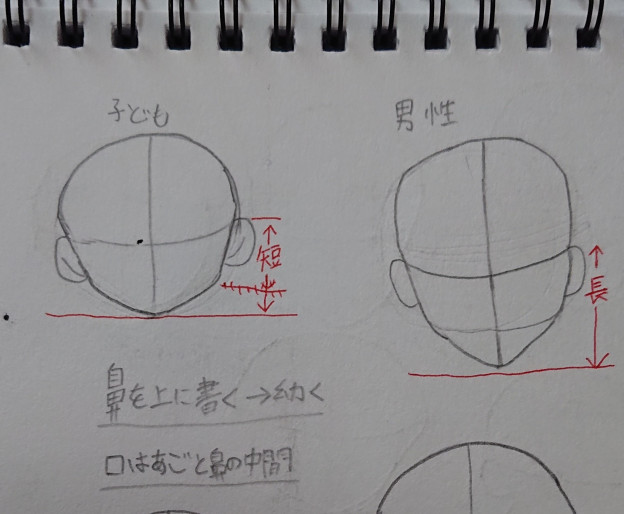 子ども
男性
短
長
鼻を上に書く→幼く
口はあごと鼻の中間